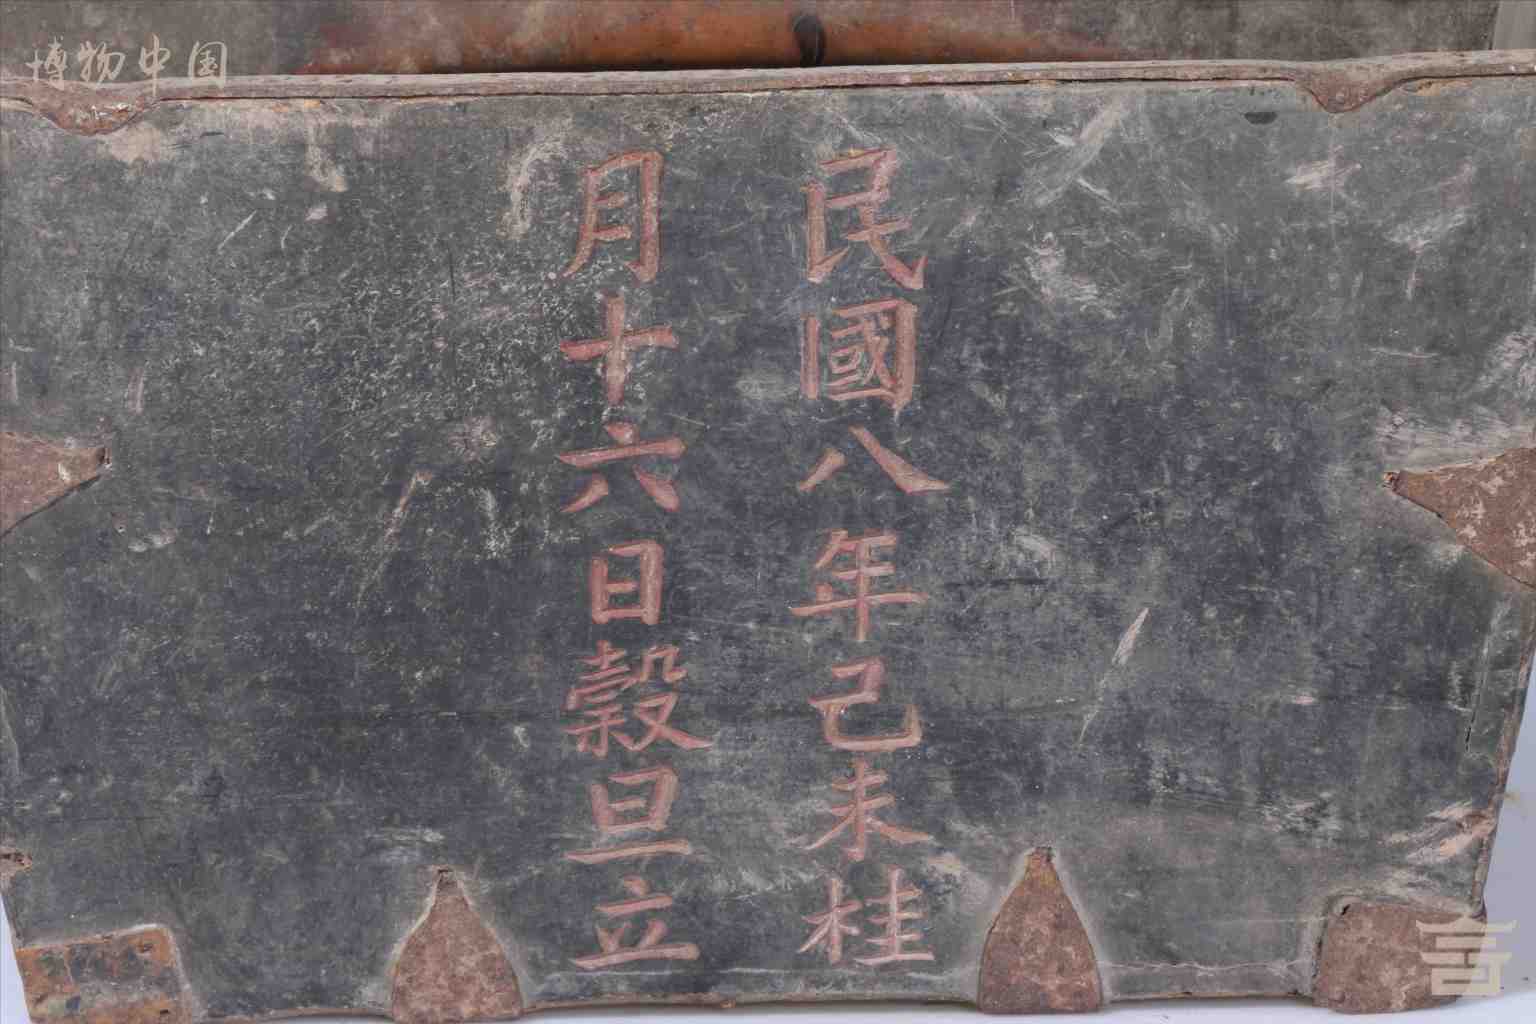 博物中国
民國八年己未桂
月十六日穀旦立